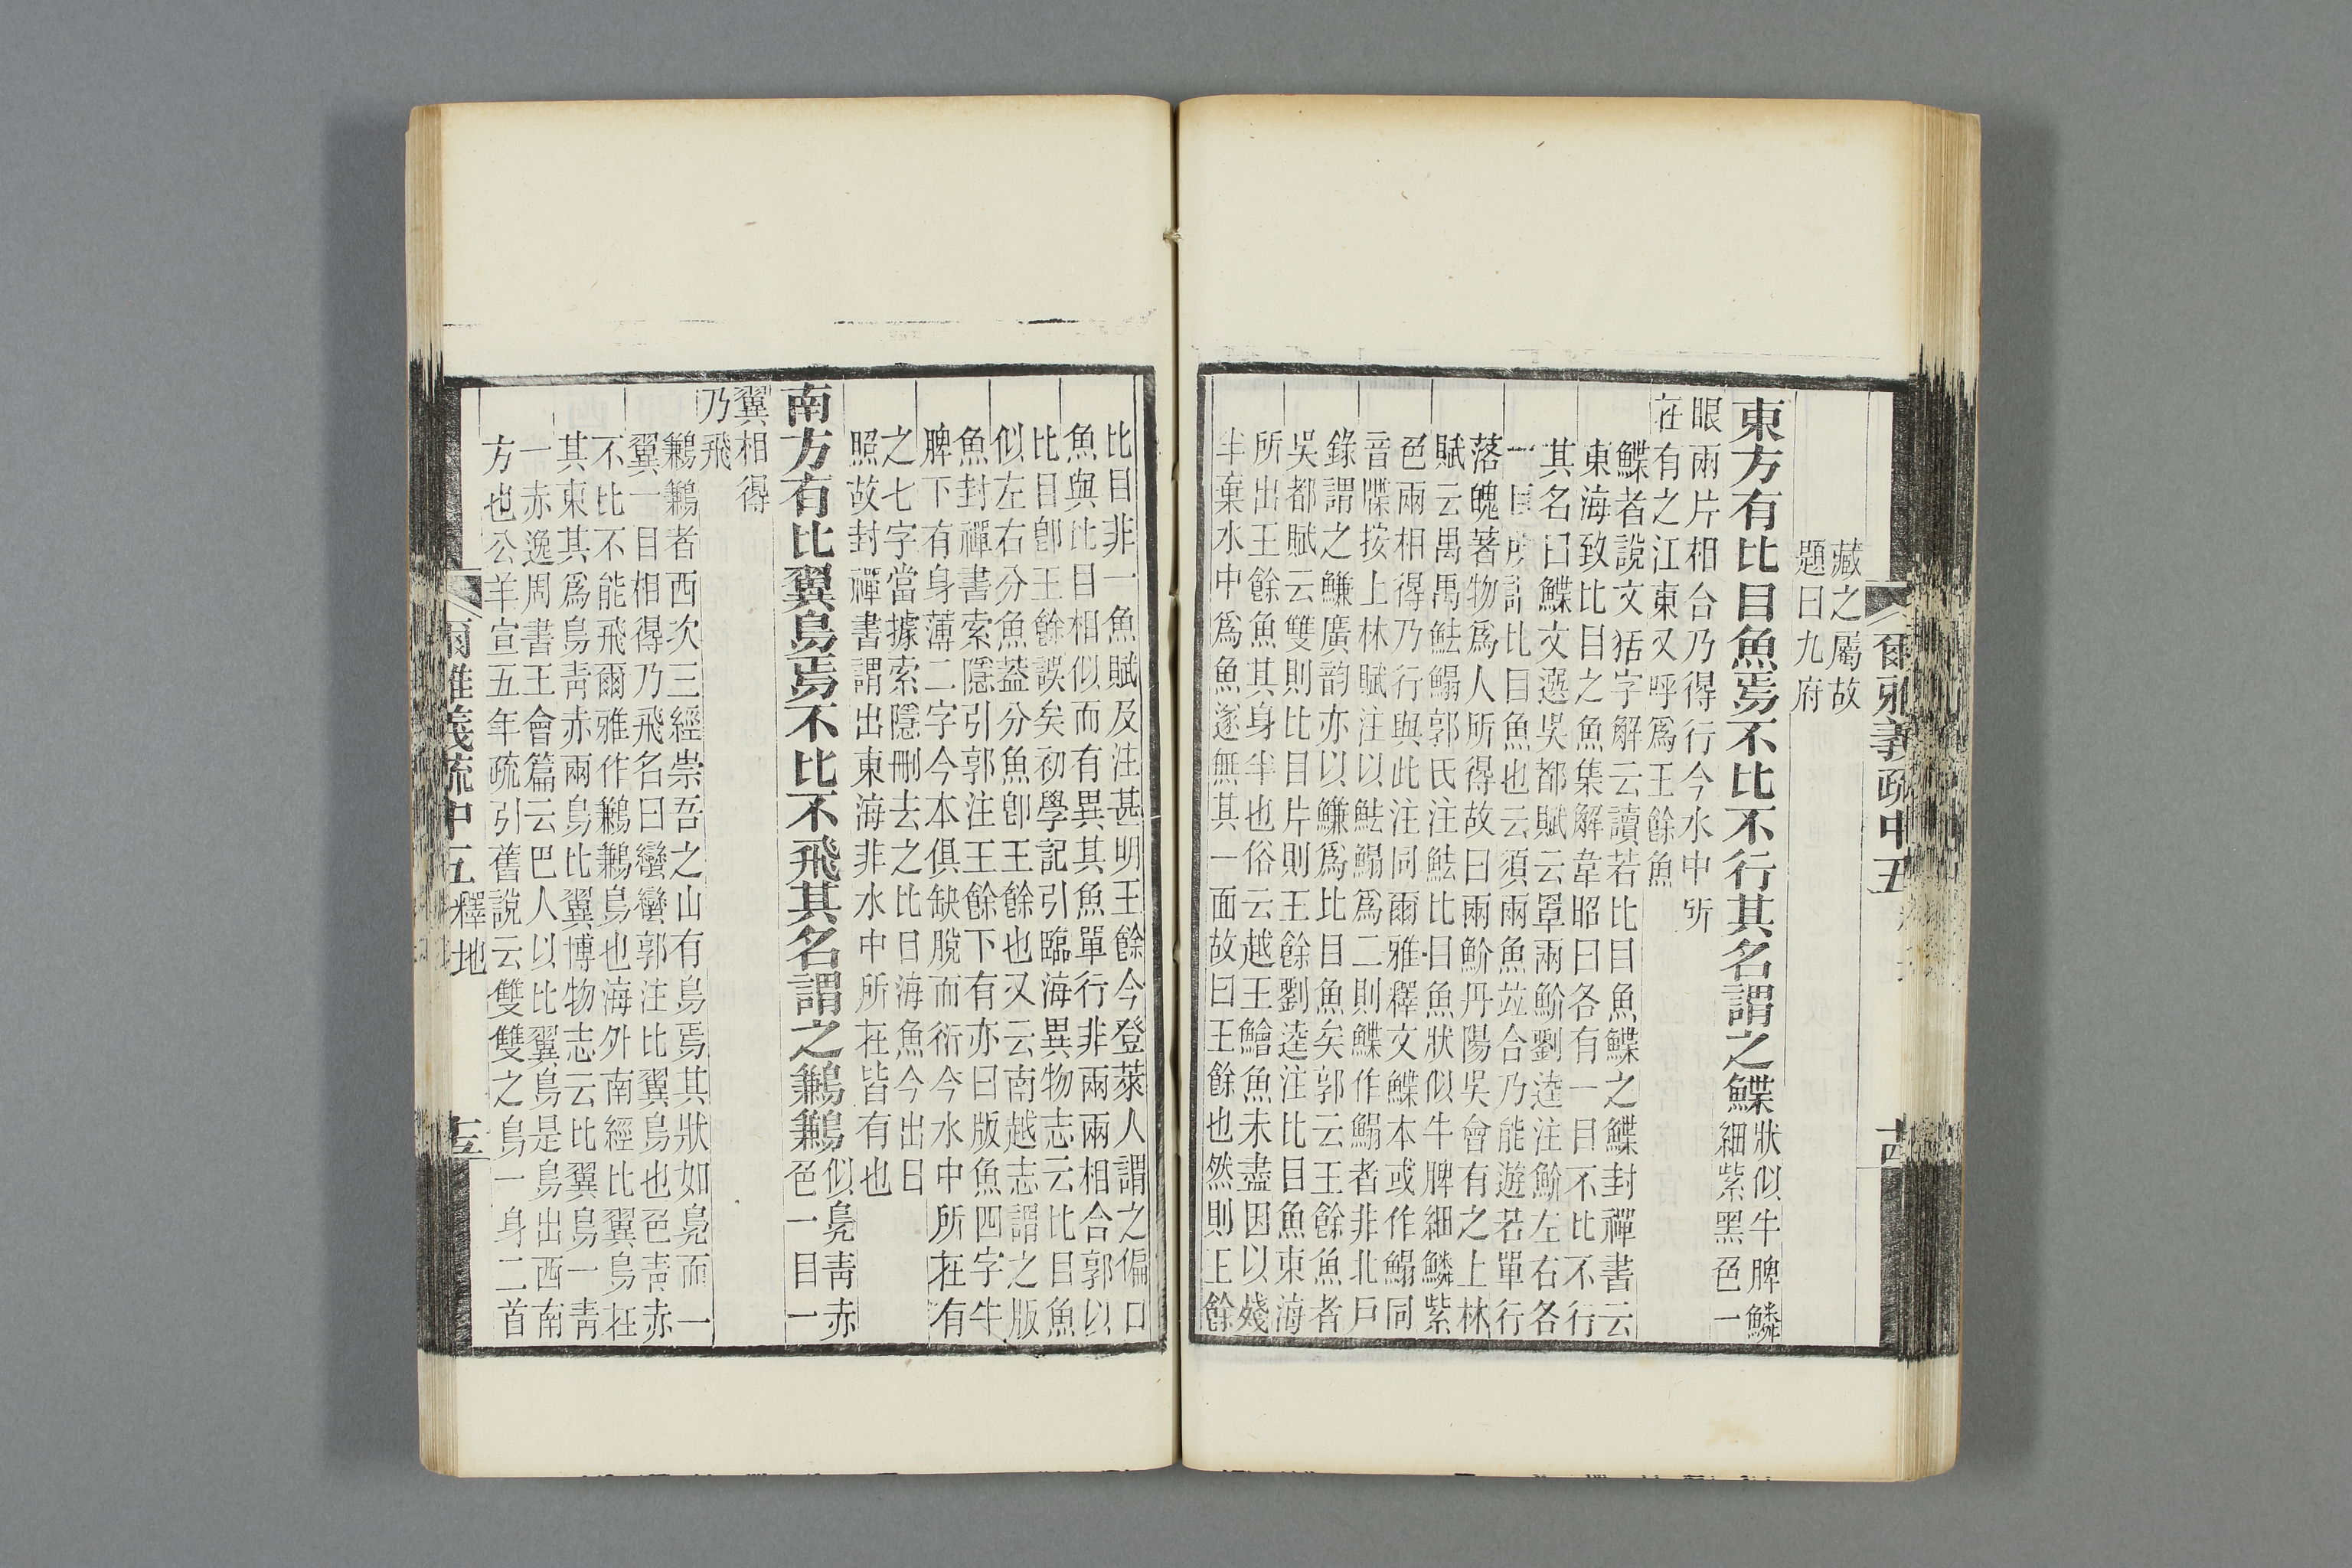 爾雅義疏中五
藏之屬故
題曰九府
東方有比目魚焉不比不行其名謂之鰈狀似牛脾鱗
細紫黑色一
眼兩片相合乃得行今水中所
在有之江東又呼爲王餘魚
鰈者說文𥬇字解云讀若比目魚鰈之鰈封禪書云
東海致比目之魚集解韋昭曰各有一目不比不行
其名曰鰈文選吳都賦云罩兩魪劉逵注魪左右各
一目所謂比目魚也云須兩魚竝合乃能遊若單行
落魄著物爲人所得故曰兩魪丹陽吳會有之上林
賦云禺禺魼鰨郭氏注魼比目魚狀似牛脾細鱗紫
色兩相得乃行與此注同爾雅釋文鰈本或作鰨同
音牒按上林賦注以魼鰨爲二則鰈作鰨者非北戶
錄謂之鰜廣韵亦以鰜爲比目魚矣郭云王餘魚者
吳都賦云雙則比目片則王餘劉逵注比目魚東海
所出王餘魚其身半也俗云越王鱠魚未盡因以殘
半棄水中爲魚遂無其一面故曰王餘也然則王餘
比目非一魚賦及注甚明王餘今登萊人謂之偏口
魚與比目相似而有異其魚單行非兩兩相合郭以
比目卽王餘誤矣初學記引臨海異物志云比目魚
似左右分魚葢分魚卽王餘也又云南越志謂之版
魚封禪書索隱引郭注王餘下有亦曰版魚四字牛
脾下有身薄二字今本俱缺脫而衍今水中所在有
之七字當據索隱刪去之比目海魚今出日
照故封禪書謂出東海非水中所在皆有也
南方有比翼鳥焉不比不飛其名謂之鶼鶼似鳧靑赤
色一目一
翼相得
乃飛
鶼鶼者西次三經崇吾之山有鳥焉其狀如鳧而一
翼一目相得乃飛名曰蠻蠻郭注比翼鳥也色靑赤
不比不能飛爾雅作鶼鶼鳥也海外南經比翼鳥在
其東其爲鳥靑赤兩鳥比翼博物志云比翼鳥一靑
一赤逸周書王會篇云巴人以比翼鳥是鳥出西南
方也公羊宣五年疏引舊說云雙雙之鳥一身二首
爾雅義疏中五 釋地